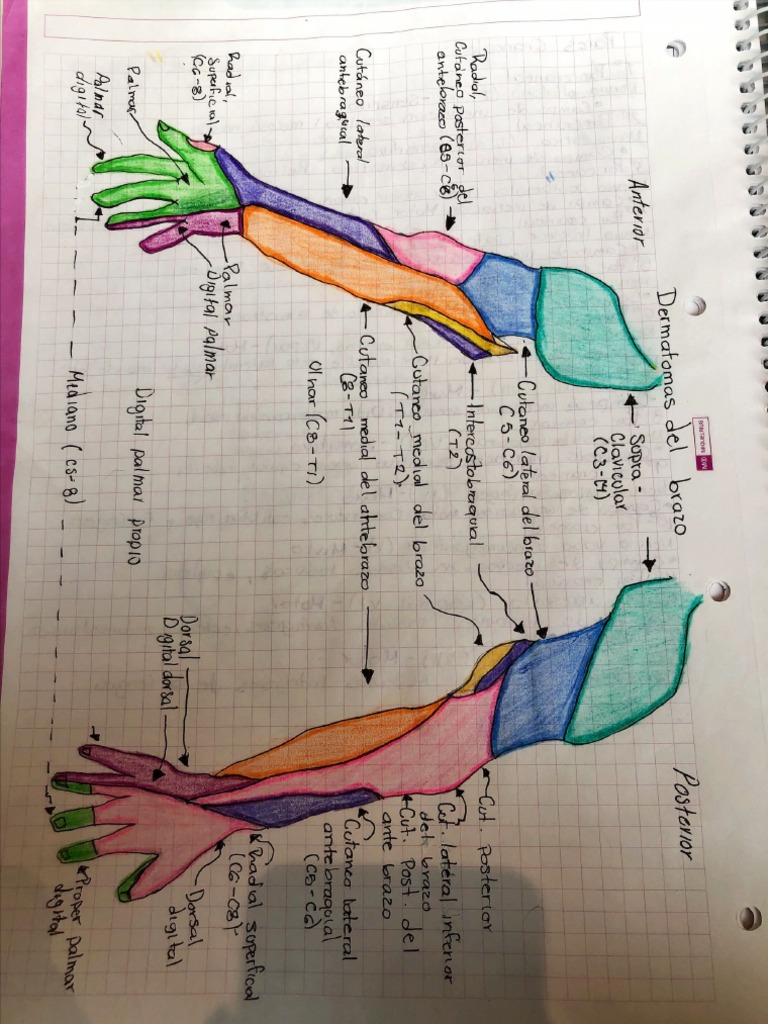 Dermatomas del brazo
Anterior
Posterior
Supra-
Clavicular
(C3-C4)
Radial,
Cutáneo posterior del
antebrazo (C5-C8)
Cutáneo lateral
antebraquial
Radial,
Superficial
(C6-8)
Palmar
Palmar
digital
Cutaneo lateral del brazo
C5-C6)
Intercostobraquial
(T2)
Cutaneo medial del brazo
(T1-T2)
Cutaneo medial del antebrazo
(8-T1)
Ulnar (C8-T1)
Palmar
Digital palmar
Digital palmar propio
Mediano (C5-8)
Dorsal
Digital dorsal
Cut. posterior
Cut. lateral inferior
del brazo
Cut. Post. del
ante brazo
Cutaneo lateral
antebraquial
(C5-C6)
Radial superficial
(C6-C8)
Dorsal
digital
Proper palmar
digital